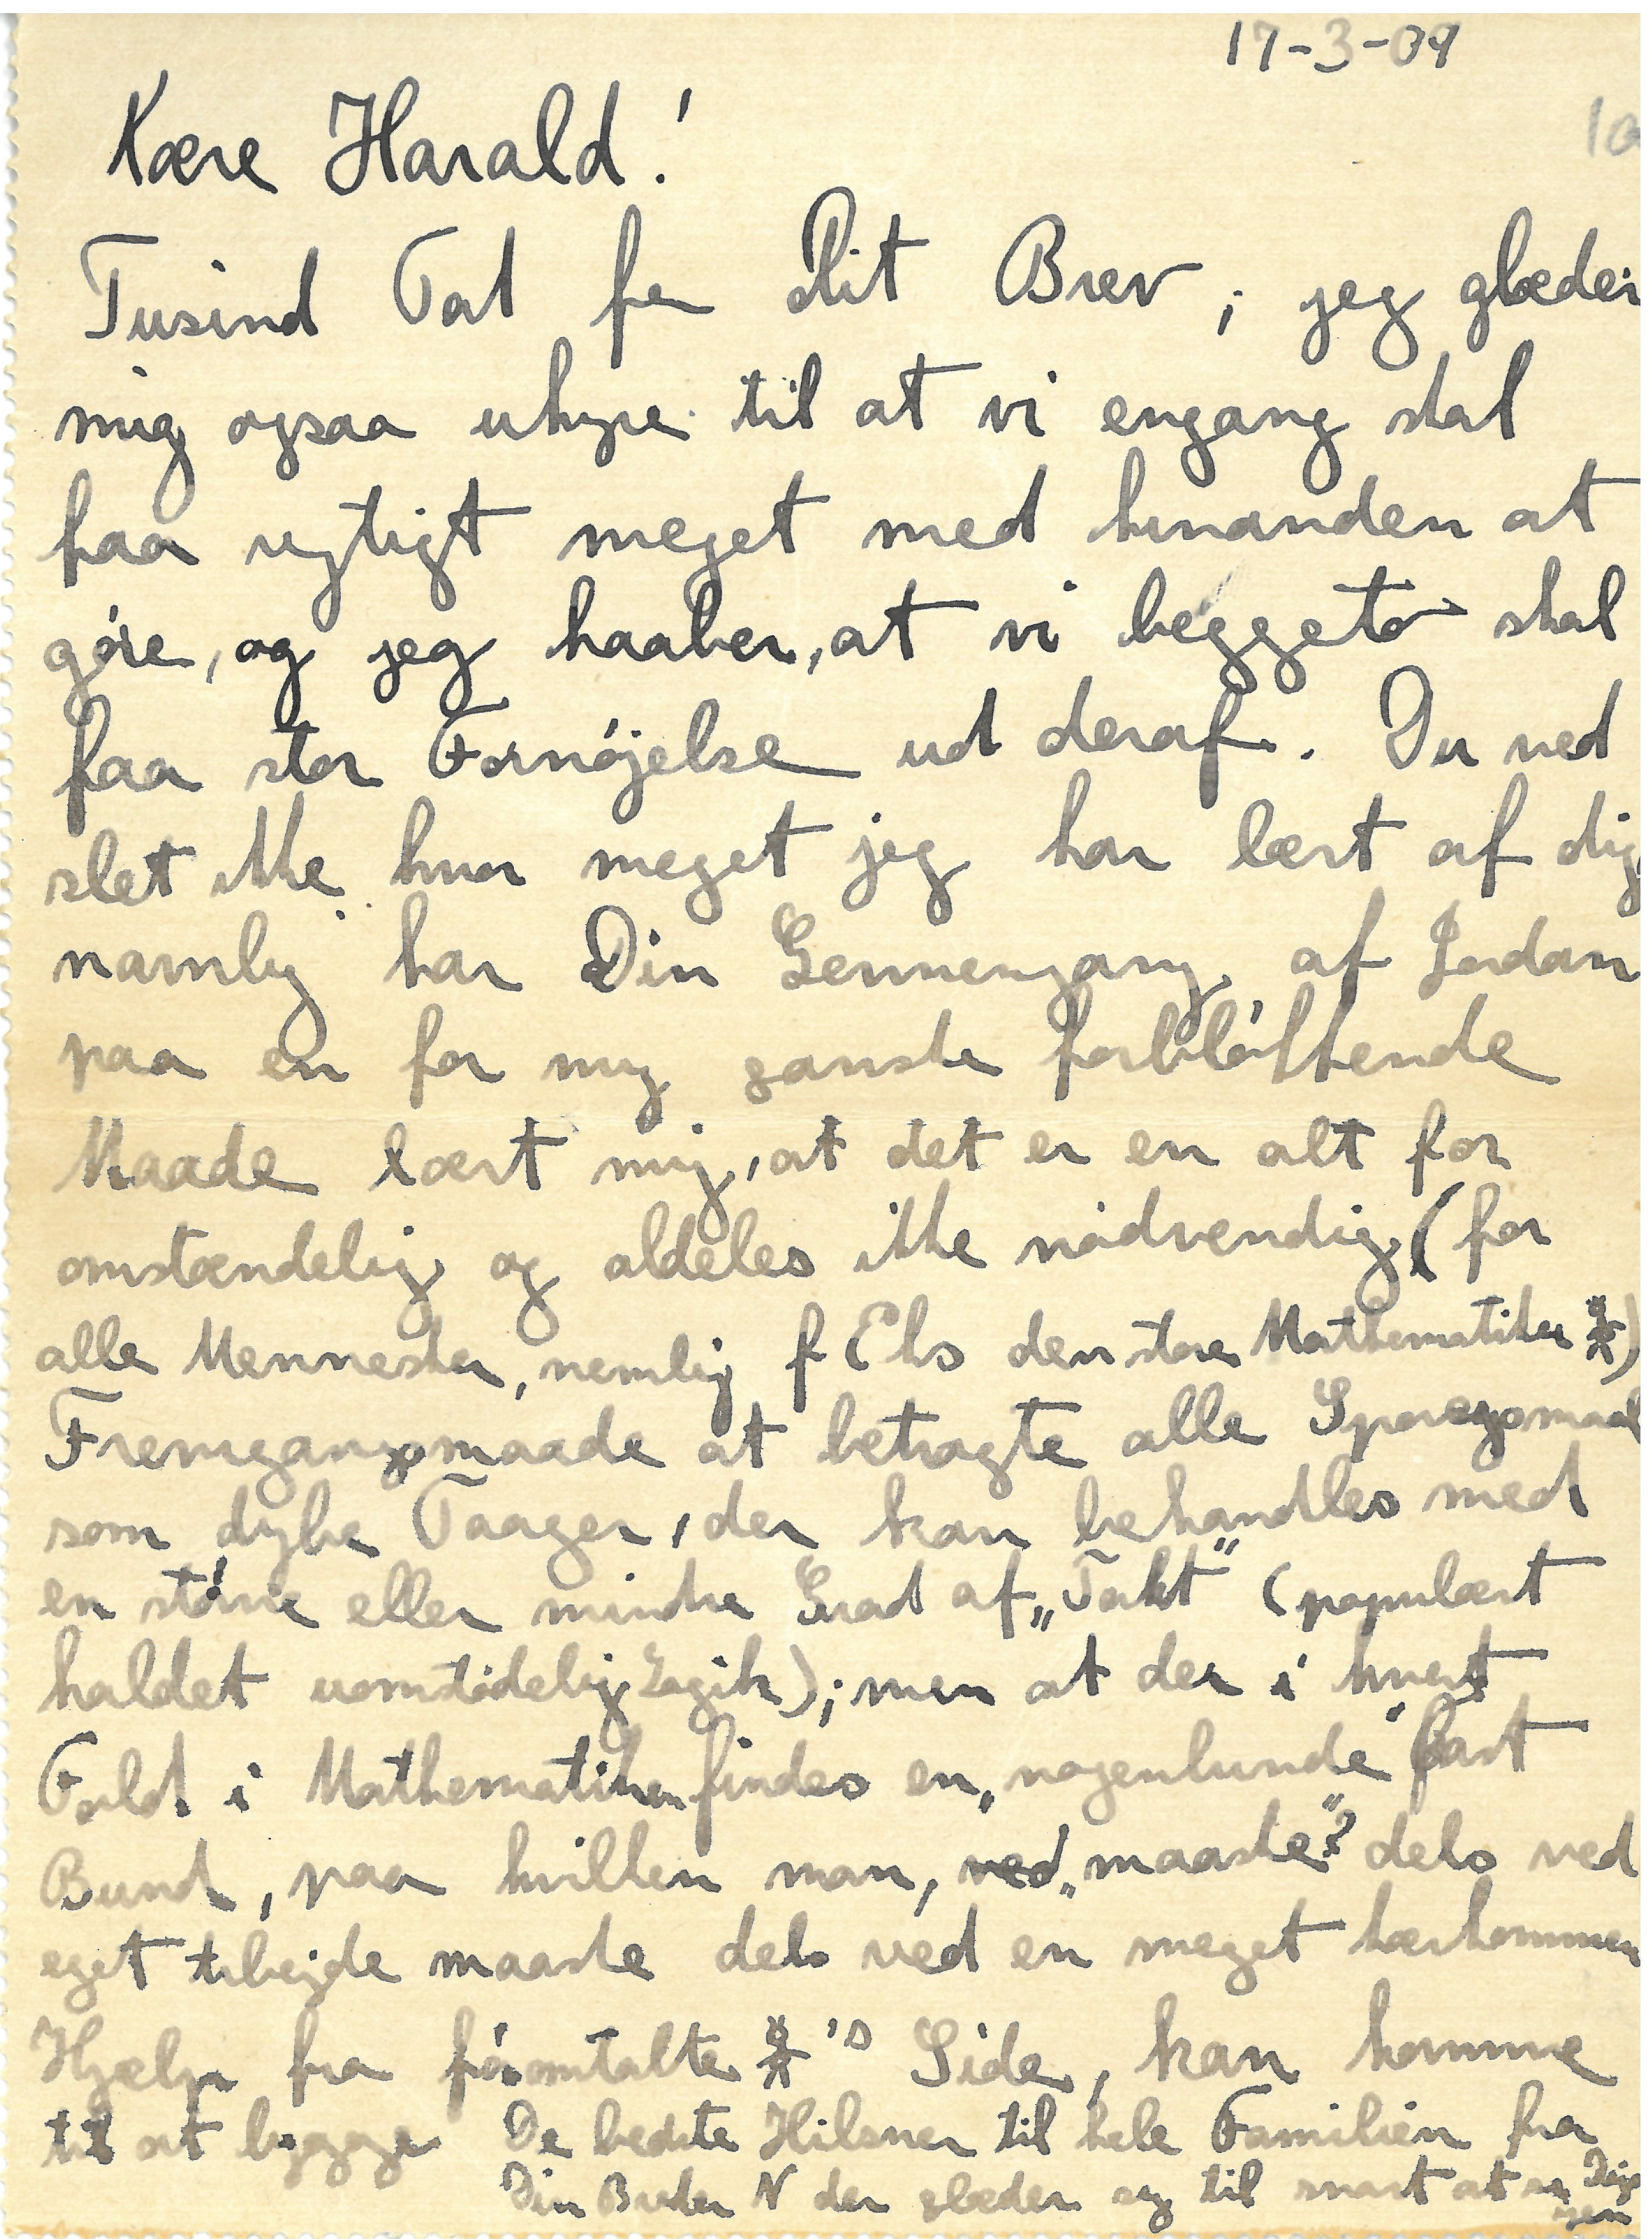 17-3-09
1a
Kære Harald!
Tusind Tak for Dit Brev; jeg glæder
mig ogsaa uhyre til at vi engang skal
faa rigtigt meget med hinanden at
göre, og jeg haaber, at vi beggeto skal
faa stor Fornöjelse ud deraf. Du ved
slet ikke hvor meget jeg har lært af dig
navnlig har Din Gennemgang af Jordan
paa en for mig ganske forblöffende
Maade lært mig, at det er en alt for
omstændelig og aldeles ikke nödvendig (for
alle Mennesker, nemlig f Eks den store Mathematiker *)
Fremgangsmaade at betragte alle Spørgsmaal
som dybe Taager, der kan behandles med
en större eller mindre Grad af „Takt“ (populært
kaldet uomstödelig Logik); men at der i hvert
Fald i Mathematiken findes en „nogenlunde“ fast
Bund, paa hvilken man, „maaske“? dels ved
eget Arbejde maaske dels ved en meget kærkommen
Hjælp fra föromtalte *'s Side, kan komme
til at bygge De bedste Hilsner til hele Familien fra
Din Broder N der glæder sig til snart at se Dig
igen